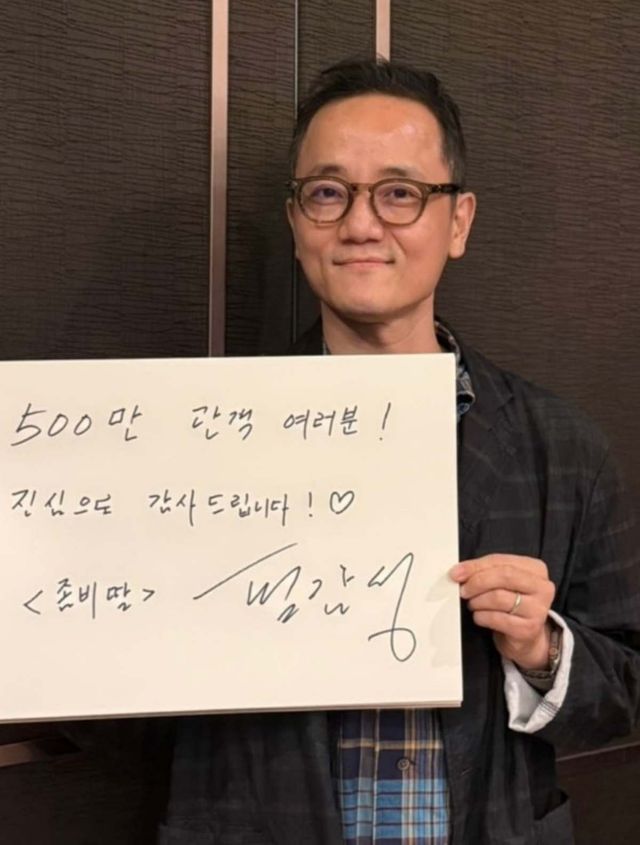 500만 관객 여러분!
진심으로 감사드립니다! ♡
<좀비딸>